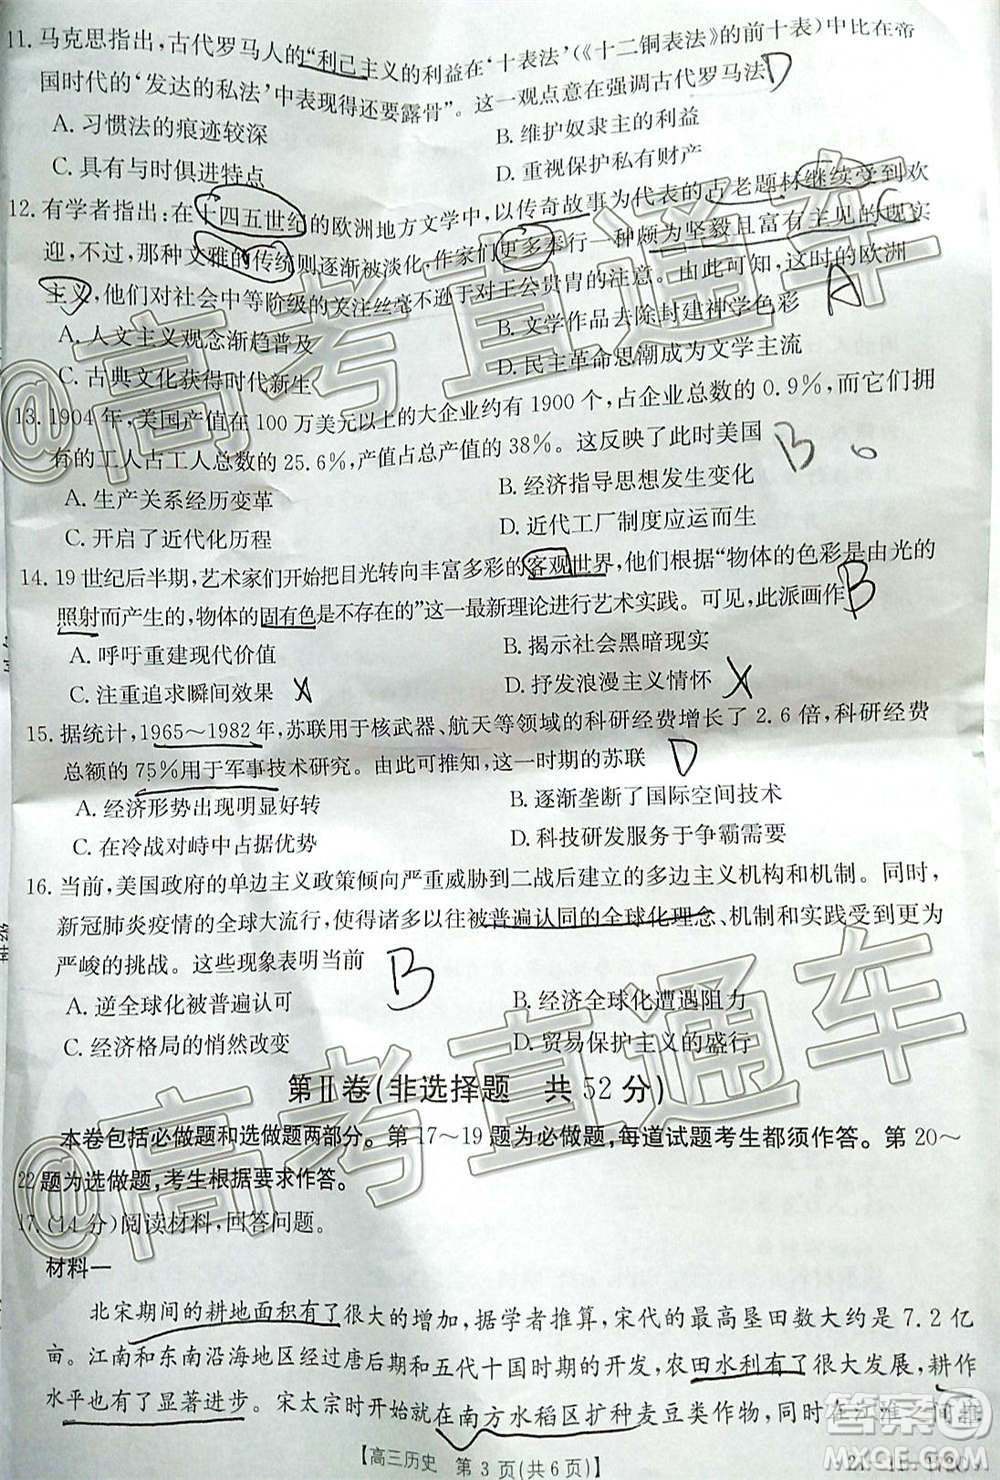 11. 马克思指出，古代罗马人的“利己主义的利益在‘十表法’（《十二铜表法》的前十表）中比在帝
国时代的‘发达的私法’中表现得还要露骨”。这一观点意在强调古代罗马法 D
A. 习惯法的痕迹较深 B. 维护奴隶主的利益
C. 具有与时俱进特点 D. 重视保护私有财产
12. 有学者指出：在十四五世纪的欧洲地方文学中，以传奇故事为代表的古老题材继续受到欢
迎，不过，那种文雅的传统则逐渐被淡化，作家们更多奉行一种颇为坚毅且富有主见的现实
主义，他们对社会中等阶级的关注丝毫不逊于对王公贵胄的注意。由此可知，这时的欧洲 A
A. 人文主义观念渐趋普及 B. 文学作品去除封建神学色彩
C. 古典文化获得时代新生 D. 民主革命思潮成为文学主流
13. 1904 年，美国产值在 100 万美元以上的大企业约有 1900 个，占企业总数的 0.9%，而它们拥
有的工人占工人总数的 25.6%，产值占总产值的 38%。这反映了此时美国 B
A. 生产关系经历变革 B. 经济指导思想发生变化
C. 开启了近代化历程 D. 近代工厂制度应运而生
14. 19 世纪后半期，艺术家们开始把目光转向丰富多彩的客观世界，他们根据“物体的色彩是由光的
照射而产生的，物体的固有色是不存在的”这一最新理论进行艺术实践。可见，此派画作 B
A. 呼吁重建现代价值 B. 揭示社会黑暗现实
C. 注重追求瞬间效果 X D. 抒发浪漫主义情怀 X
15. 据统计，1965～1982 年，苏联用于核武器、航天等领域的科研经费增长了 2.6 倍，科研经费
总额的 75%用于军事技术研究。由此可推知，这一时期的苏联 D
A. 经济形势出现明显好转 B. 逐渐垄断了国际空间技术
C. 在冷战对峙中占据优势 D. 科技研发服务于争霸需要
16. 当前，美国政府的单边主义政策倾向严重威胁到二战后建立的多边主义机构和机制。同时，
新冠肺炎疫情的全球大流行，使得诸多以往被普遍认同的全球化理念、机制和实践受到更为
严峻的挑战。这些现象表明当前 B
A. 逆全球化被普遍认可 B. 经济全球化遭遇阻力
C. 经济格局的悄然改变 D. 贸易保护主义的盛行
第Ⅱ卷（非选择题 共 52 分）
本卷包括必做题和选做题两部分。第 17～19 题为必做题，每道试题考生都须作答。第 20～
22 题为选做题，考生根据要求作答。
17. (14 分)阅读材料，回答问题。
材料一
北宋期间的耕地面积有了很大的增加，据学者推算，宋代的最高垦田数大约是 7.2 亿
亩。江南和东南沿海地区经过唐后期和五代十国时期的开发，农田水利有了很大发展，耕作
水平也有了显著进步。宋太宗时开始就在南方水稻区扩种麦豆类作物，同时在江淮之间推
【高三历史 第 3 页(共 6 页)】
@高考直通车
@高考直通车
答案圈